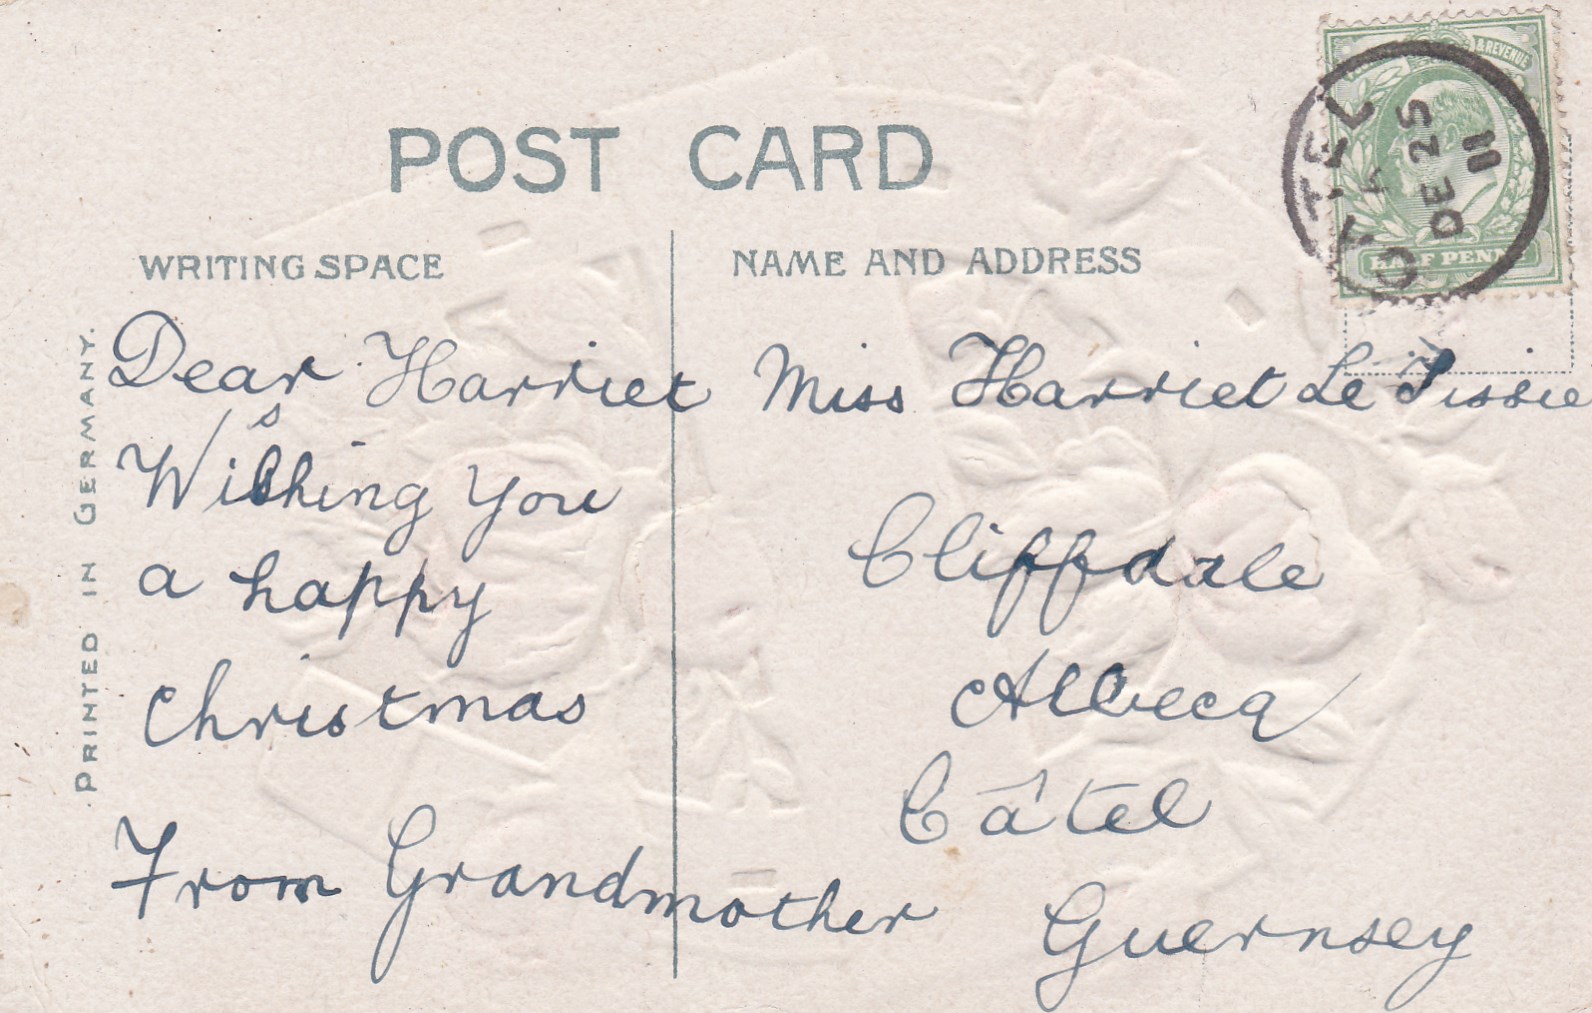 POST CARD
WRITING SPACE
NAME AND ADDRESS
PRINTED IN GERMANY.
Dear Harriet
Wishing you
a happy
Christmas
From Grandmother
Miss Harriet Le Tissie
Cliffdale
Albecq
Câtel
Guernsey
& REVENUE
HALF PENNY
DE 25
11